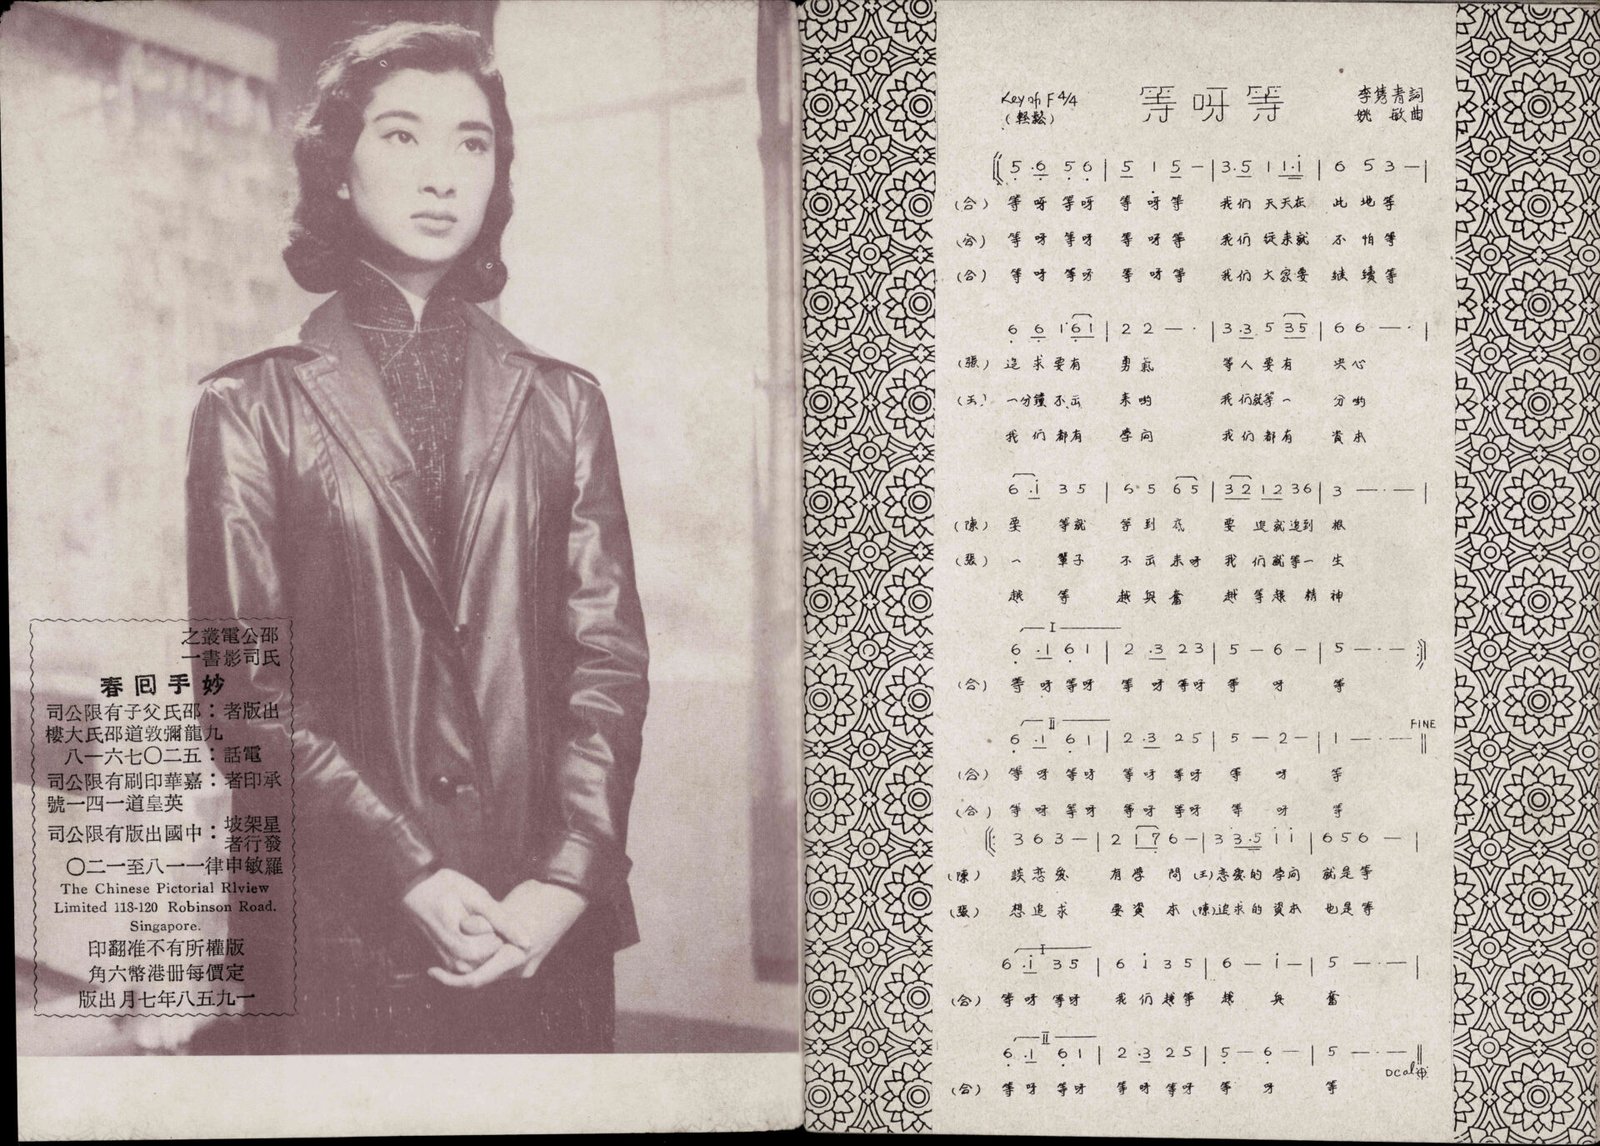 邵氏公司電影叢書之一
妙手回春
出版者：邵氏父子有限公司
九龍彌敦道邵氏大樓
電話：五二〇七六一八
承印者：嘉華印刷有限公司
英皇道一四一號
星架坡發行者：中國出版有限公司
羅敏申律一一八至一二〇
The Chinese Pictorial Rlview
Limited 118-120 Robinson Road.
Singapore.
版權所有不准翻印
定價每冊港幣六角
一九五八年七月出版
Key of F 4/4
(輕鬆)
等呀等
李雋青詞
姚敏曲
5 ·6 5 6 | 5 1 5 — | 3·5 1 1·i | 6 5 3 — |
(合) 等呀等呀 等呀等 我们天天在 此地等
(合) 等呀等呀 等呀等 我们從來就 不怕等
(合) 等呀等呀 等呀等 我们大家要 继續等
6 6 1·61 | 2 2 — · | 3·3 5 35 | 6 6 — · |
(張) 追求要有 勇氣 等人要有 決心
(王) 一分鐘不出 來喲 我们就等一 分喲
我们都有 學问 我们都有 資本
6 ·i 3 5 | 6 5 65 | 32 12 36 | 3 — · — |
(陳) 要等就 等到底 要追就追到 根
(張) 一輩子 不出來呀 我们就等一 生
越等 越兴奮 越等越精 神
I
6 ·1 6 1 | 2 ·3 2 3 | 5 — 6 — | 5 — · — |
(合) 等呀等呀 等呀等呀 等呀 等
II
FINE
6 ·1 6 1 | 2 ·3 2 5 | 5 — 2 — | 1 — · —
(合) 等呀等呀 等呀等呀 等呀 等
(合) 等呀等呀 等呀等呀 等呀 等
3 6 3 — | 2 17 6 — | 3 3·5 i i | 6 5 6 — |
(陳) 談恋爱 有學問 (王)恋爱的學问 就是等
(張) 想追求 要資本 (陳)追求的資本 也是等
I
6 ·i 3 5 | 6 i 3 5 | 6 — i — | 5 — · — |
(合) 等呀等呀 我们越等 越兴 奮
II
6 ·1 6 1 | 2 ·3 2 5 | 5 — 6 — | 5 — · —
DC al
(合) 等呀等呀 等呀等呀 等呀 等